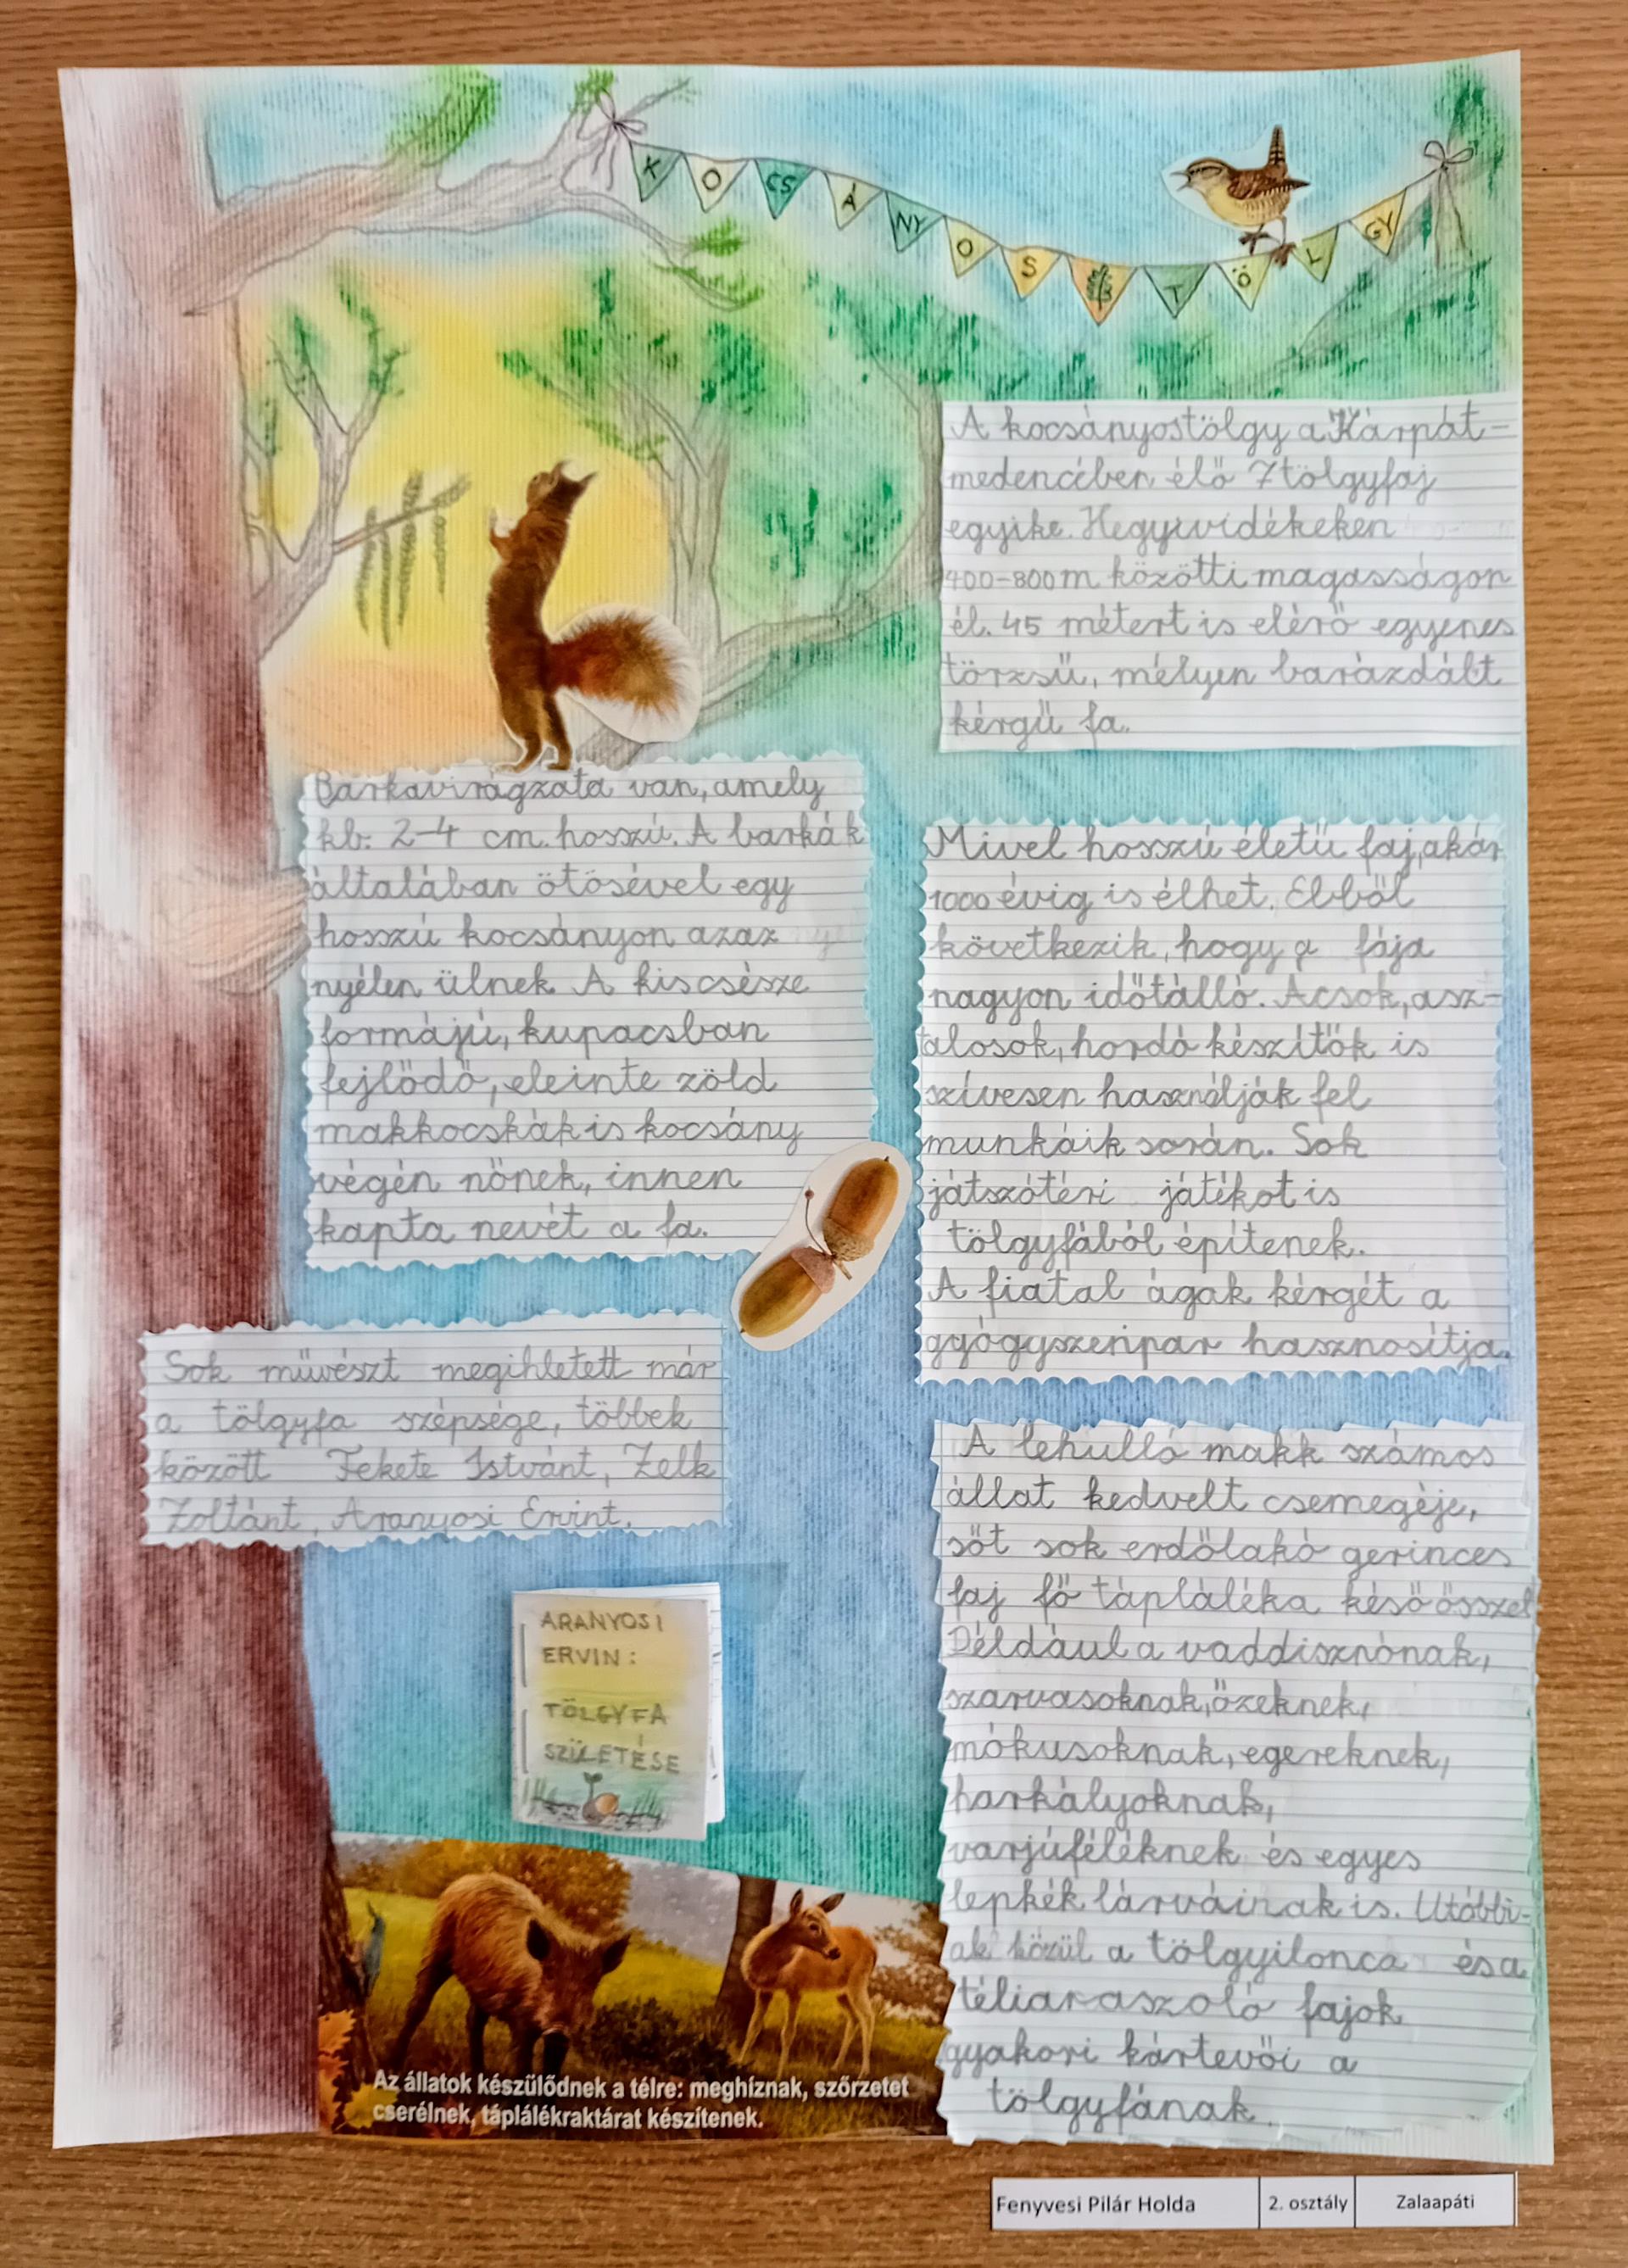 KOCSÁNYOS TÖLGY
A kocsányostölgy a Kárpát-
medencében élő 7 tölgyfaj
egyike. Hegyividékeken
400-800m közötti magasságon
él. 45 métert is elérő egyenes
törzsű, mélyen barázdált
kérgű fa.
Barkavirágzata van, amely
kb. 2-4 cm. hosszú. A barkák
általában ötösével egy
hosszú kocsányon azaz
nyélen ülnek. A kiscsésze
formájú, kupacsban
fejlődő, eleinte zöld
makkocskák is kocsány
végén nőnek, innen
kapta nevét a fa.
Mivel hosszú életű faj, akár
1000 évig is élhet. Ebből
következik, hogy a fája
nagyon időtálló. Ácsok, asz-
talosok, hordó készítők is
szívesen használják fel
munkáik során. Sok
játszótéri játékot is
tölgyfából építenek.
A fiatal ágak kérgét a
gyógyszeripar hasznosítja.
Sok művészt megihletett már
a tölgyfa szépsége, többek
között Fekete Istvánt, Zelk
Zoltánt, Aranyosi Ervint.
ARANYOSI
ERVIN:
TÖLGYFA
SZÜLETÉSE
A lehulló makk számos
állat kedvelt csemegéje,
sőt sok erdőlakó gerinces
faj fő tápláléka késő ősszel
Például a vaddisznónak,
szarvasoknak, őzeknek,
mókusoknak, egereknek,
harkályoknak,
varjúféléknek és egyes
lepkék lárváinak is. Utóbbi-
ak közül a tölgyilonca és a
téliaraszoló fajok
gyakori kártevői a
tölgyfának.
Az állatok készülődnek a télre: meghíznak, szőrzetet
cserélnek, táplálékraktárat készítenek.
Fenyvesi Pilár Holda 2. osztály Zalaapáti